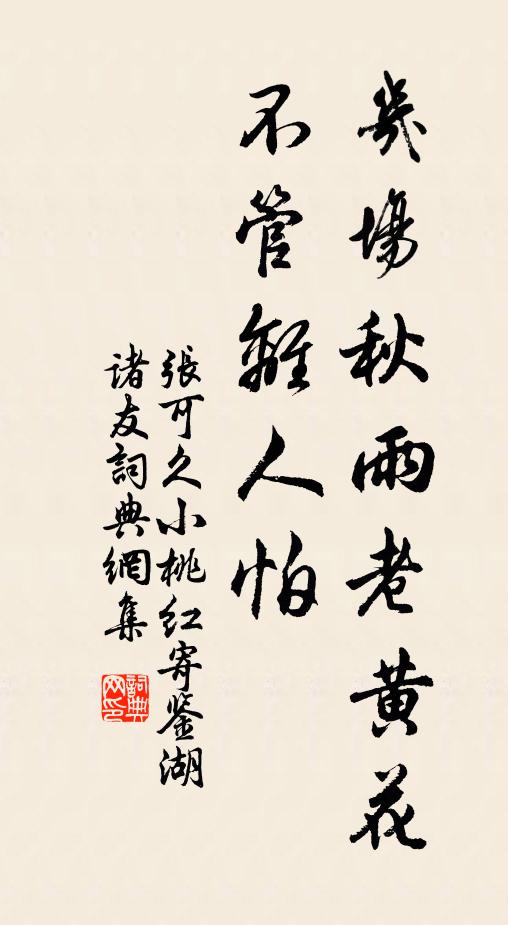 幾場秋雨老黃花
不管離人怕
張可久小桃紅寄鑒湖
諸友詞典網集
詞典
网印